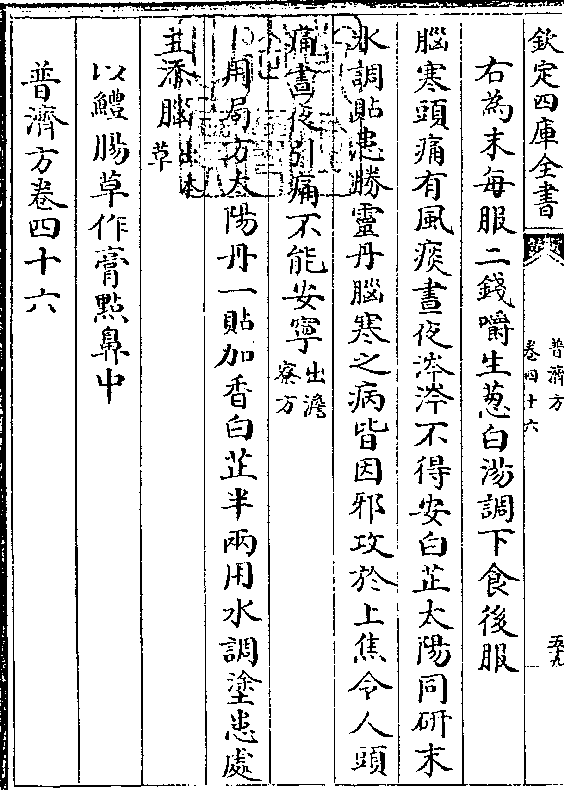 欽定四庫全書
普濟方
卷四十六
五九
右為末每服二錢嚼生葱白湯調下食後服
腦寒頭痛有風痰晝夜涔涔不得安白芷太陽同研末
水調貼患勝靈丹腦寒之病皆因邪攻於上焦令人頭
痛晝夜引痛不能安寧出澹寮方
右用局方太陽丹一貼加香白芷半兩用水調塗患處
添腦出本草
以鱧腸草作膏點鼻中
普濟方卷四十六